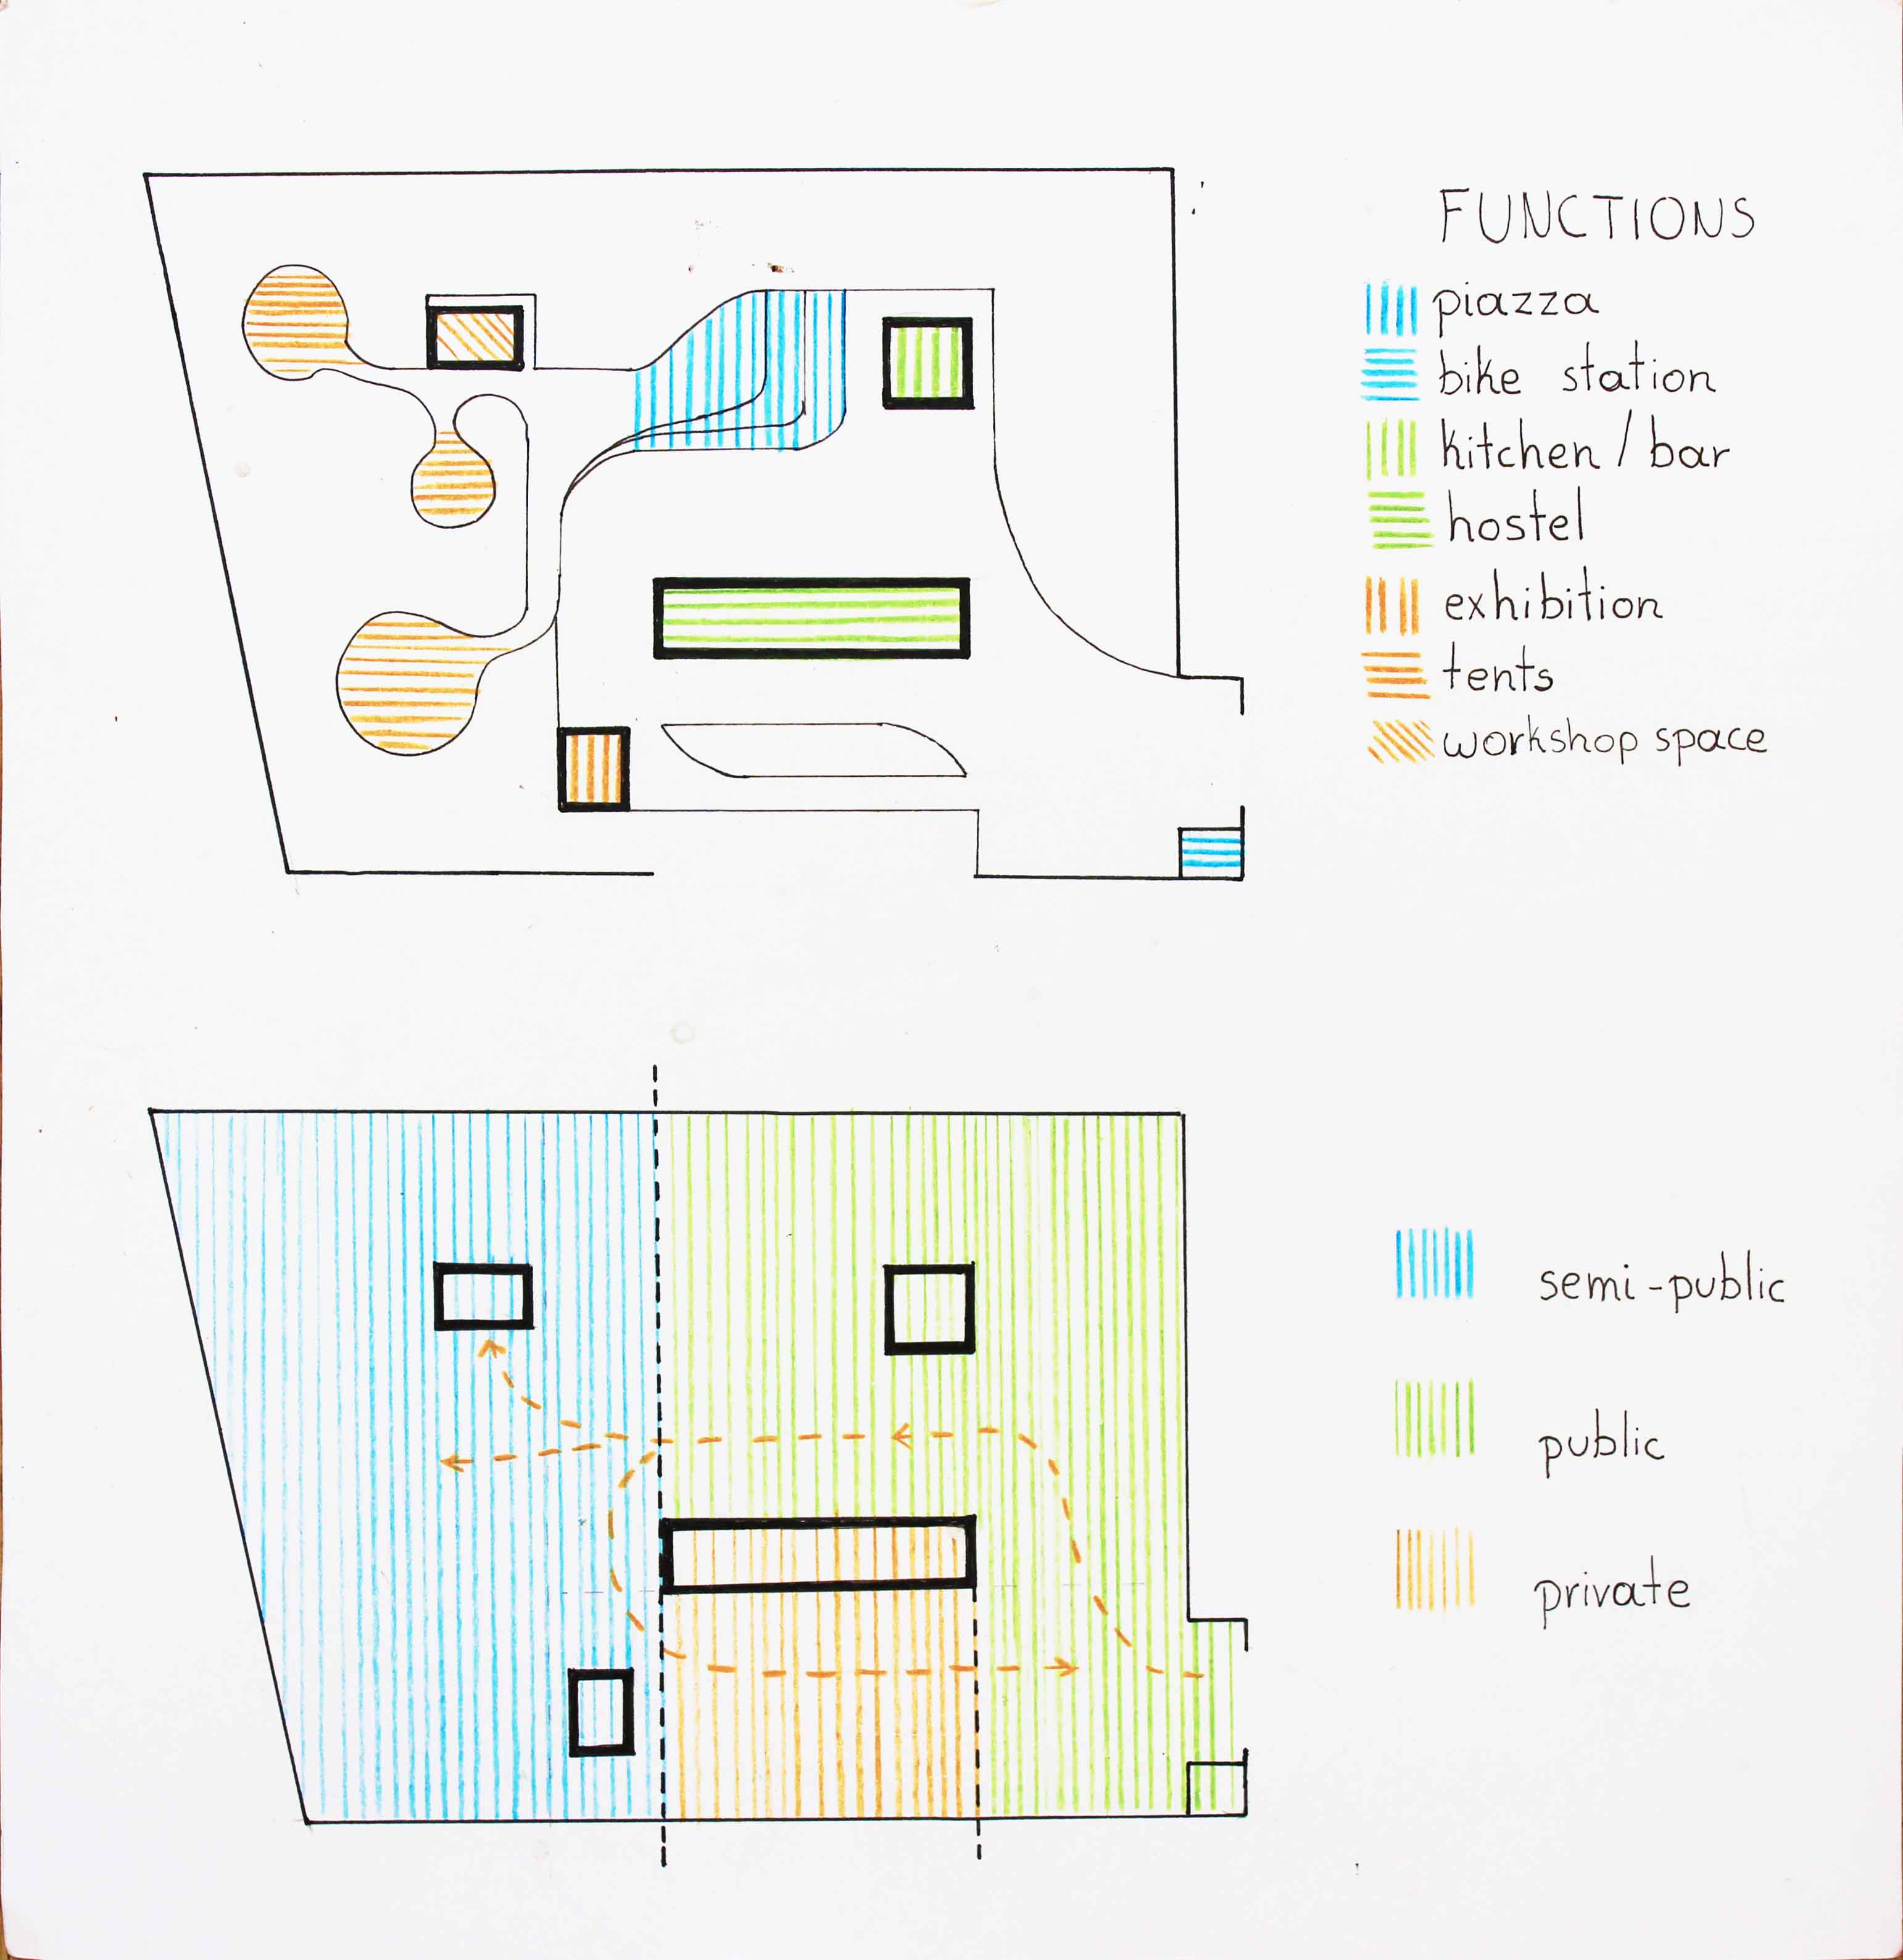 FUNCTIONS
piazza
bike station
kitchen / bar
hostel
exhibition
tents
workshop space
semi-public
public
private